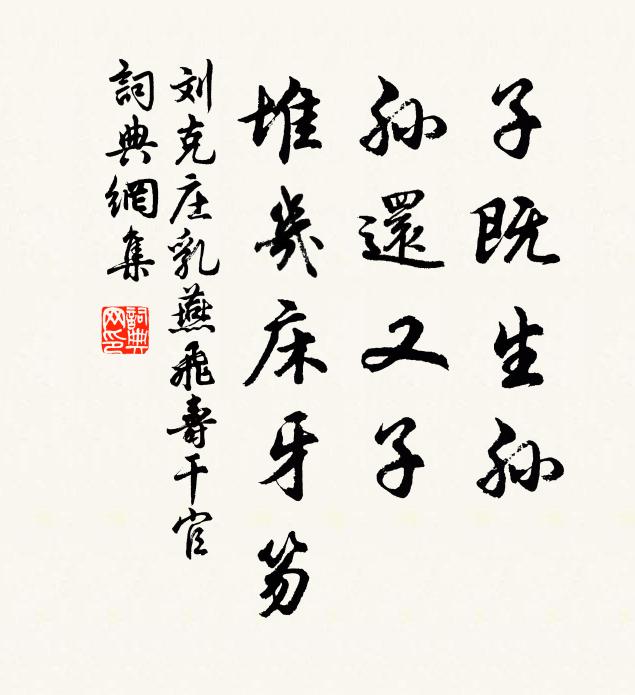 子既生孙
孙還又子
堆幾床牙笏
刘克庄乳燕飛壽干官
詞典網集
詞典
网印